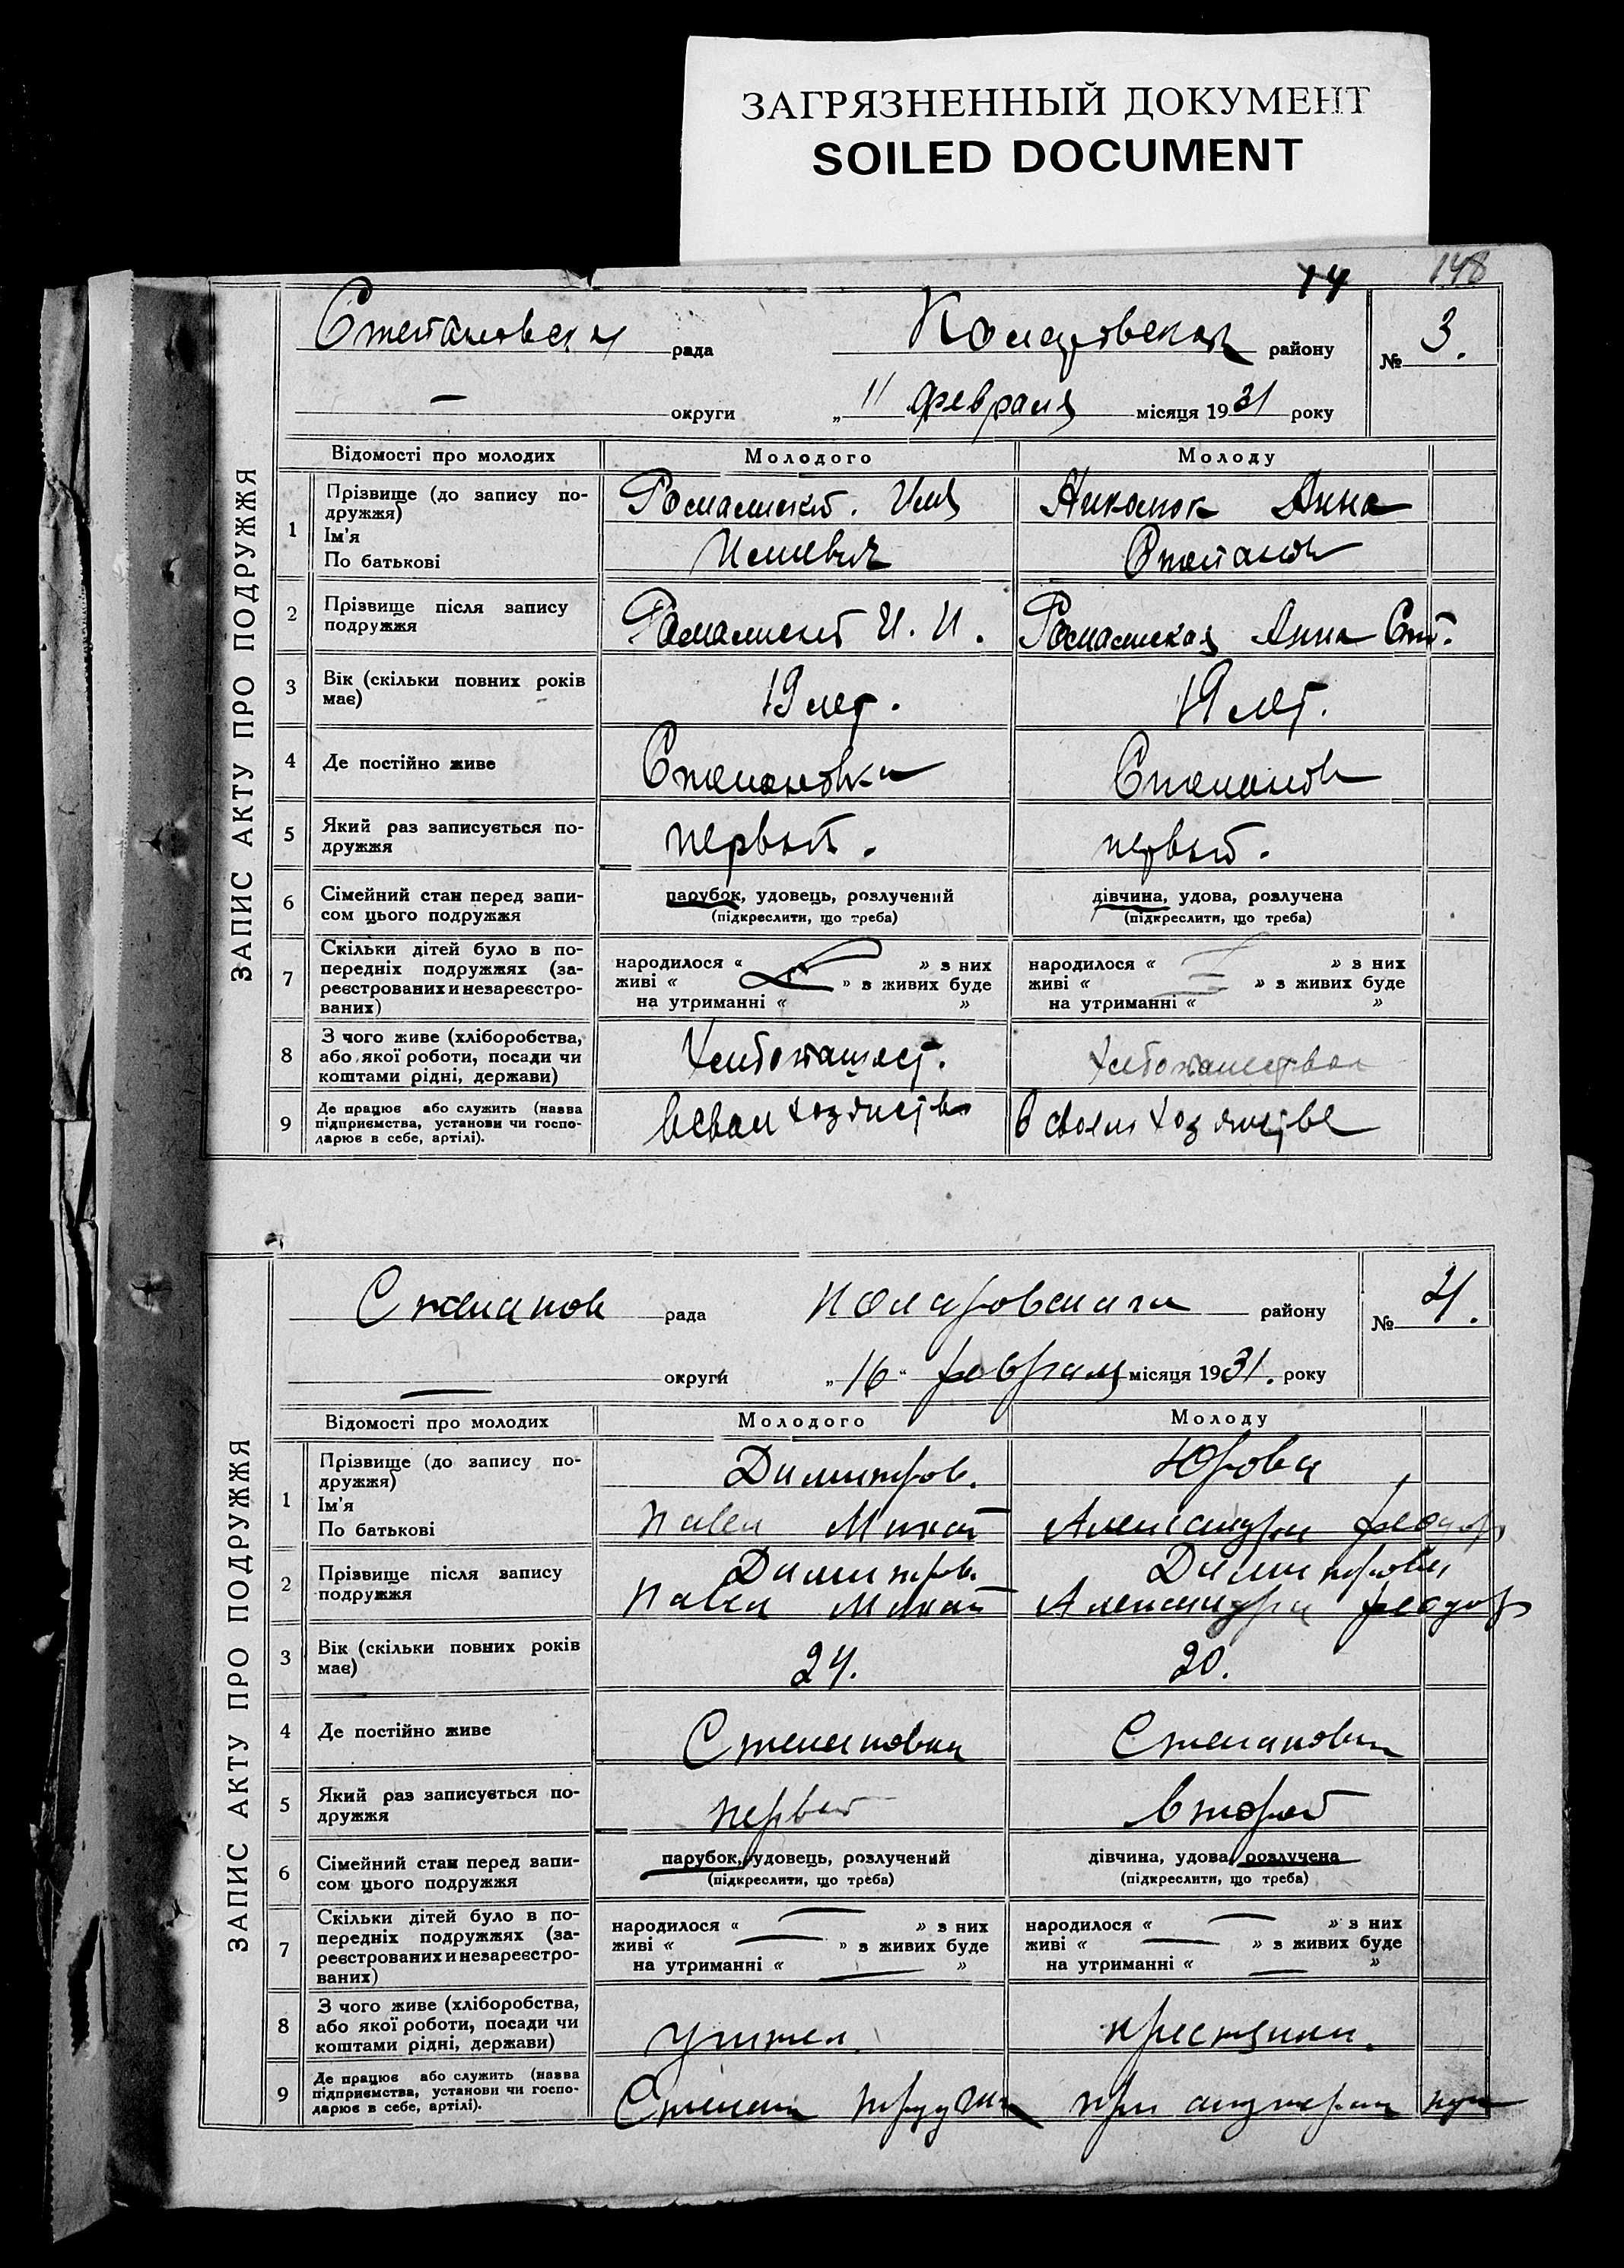 ЗАГРЯЗНЕННЫЙ ДОКУМЕНТ
SOILED DOCUMENT
14 148
ЗАПИС АКТУ ПРО ПОДРУЖЖЯ
рада району № 3.
— округи „11 февраля місяця 1931 року
Відомості про молодих Молодого Молоду
1 Прізвище (до запису по-
дружжя)
Ім'я
По батькові
Анна
2 Прізвище після запису
подружжя
И. И. Анна
3 Вік (скільки повних років
має)
19 лет. 19 лет.
4 Де постійно живе Степановка Степанов
5 Який раз записується по-
дружжя
первый. первый.
6 Сімейний стан перед запи-
сом цього подружжя
парубок, удовець, розлучений дівчина, удова, розлучена
(підкреслити, що треба) (підкреслити, що треба)
7 Скільки дітей було в по-
передніх подружжях (за-
реєстрованих и незареєстро-
ваних)
народилося « » з них народилося « » з них
живі « » з живих буде живі « » з живих буде
на утриманні « » на утриманні « »
8 З чого живе (хліборобства,
або якої роботи, посади чи
коштами рідні, держави)
9 Де працює або служить (назва
підприємства, установи чи госпо-
дарює в себе, артілі).
в своем хозяйстве
ЗАПИС АКТУ ПРО ПОДРУЖЖЯ
Степанов рада району №
округи „16“ февраля місяця 1931. року
Відомості про молодих Молодого Молоду
1 Прізвище (до запису по-
дружжя)
Ім'я
По батькові
Димитров. Юрова
Павел Михай Александра Феодор
2 Прізвище після запису
подружжя
Димитров Димитрова
Павел Михай Александра Феодор
3 Вік (скільки повних років
має)
24. 20.
4 Де постійно живе Степановка Степановка
5 Який раз записується по-
дружжя
первый второй
6 Сімейний стан перед запи-
сом цього подружжя
парубок, удовець, розлучений дівчина, удова, розлучена
(підкреслити, що треба) (підкреслити, що треба)
7 Скільки дітей було в по-
передніх подружжях (за-
реєстрованих и незареєстро-
ваних)
народилося « — » з них народилося « — » з них
живі « — » з живих буде живі « — » з живих буде
на утриманні « — » на утриманні « — »
8 З чого живе (хліборобства,
або якої роботи, посади чи
коштами рідні, держави)
учител.
9 Де працює або служить (назва
підприємства, установи чи госпо-
дарює в себе, артілі).
при